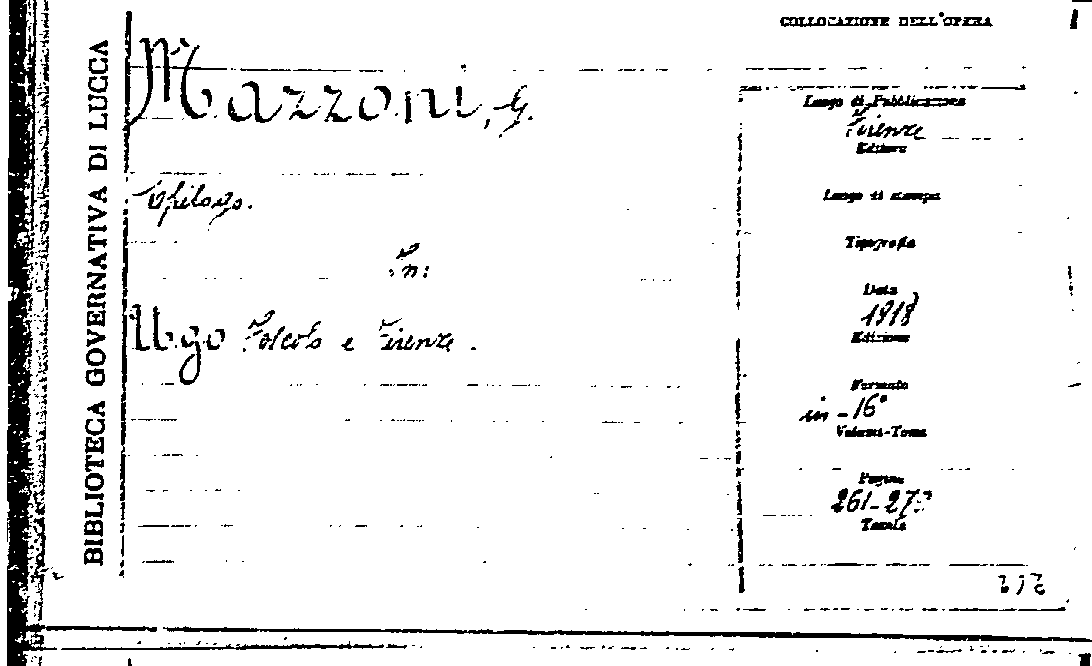 BIBLIOTECA GOVERNATIVA DI LUCCA
COLLOCAZIONE DELL'OPERA
Mazzoni, G.
Epilogo.
In:
Ugo Foscolo e Firenze.
Luogo di Pubblicazione
Firenze
Editore
Luogo di stampa
Tipografia
Data
1918
Edizione
Formato
in-16°
Volumi-Tomo
Pagine
Tavole